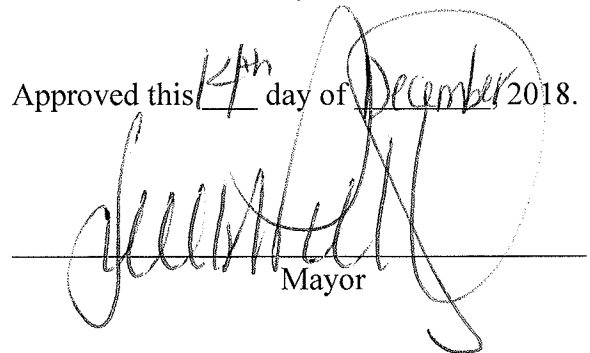 Approved this 14th day of December, 2018.
Mayor